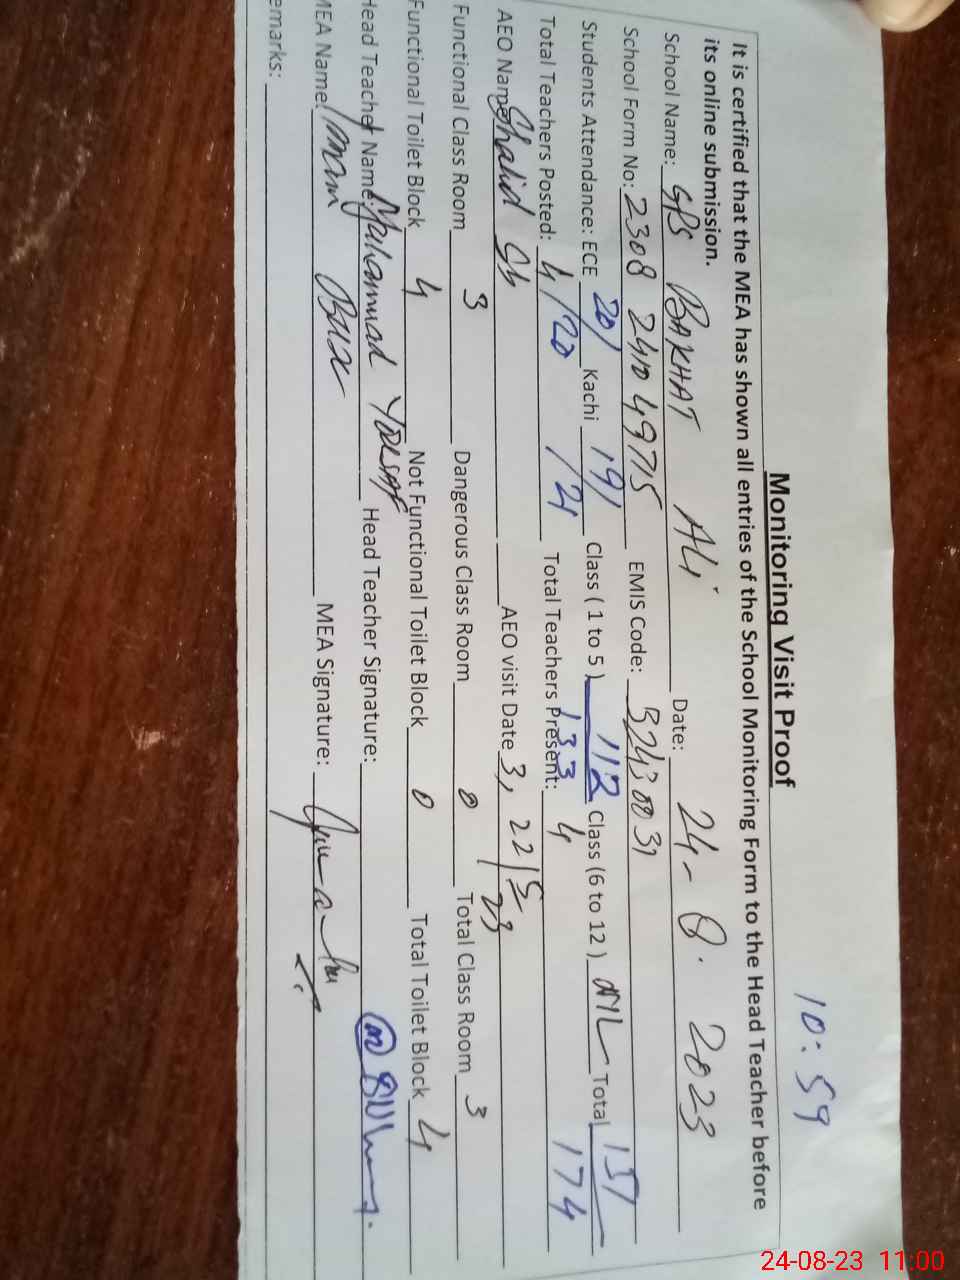 10:59
Monitoring Visit Proof
It is certified that the MEA has shown all entries of the School Monitoring Form to the Head Teacher before
its online submission.
School Name: GPS BAKHAT Ali Date: 24-8. 2023
School Form No: 2308 2410 49715 EMIS Code: 32430031
Students Attendance: ECE 20/ Kachi 19/ Class ( 1 to 5 ) 112 Class (6 to 12 ) NIL Total 151
/20 /21 133 174
Total Teachers Posted: 4 Total Teachers Present: 4
AEO Name Khalid AEO visit Date 3, 22/5/23
Functional Class Room 3 Dangerous Class Room 0 Total Class Room 3
Functional Toilet Block 4 Not Functional Toilet Block 0 Total Toilet Block 4
Head Teacher Name: Muhammad Yousaf Head Teacher Signature:
MEA Name: Imam Bux MEA Signature:
emarks:
24-08-23 11:00